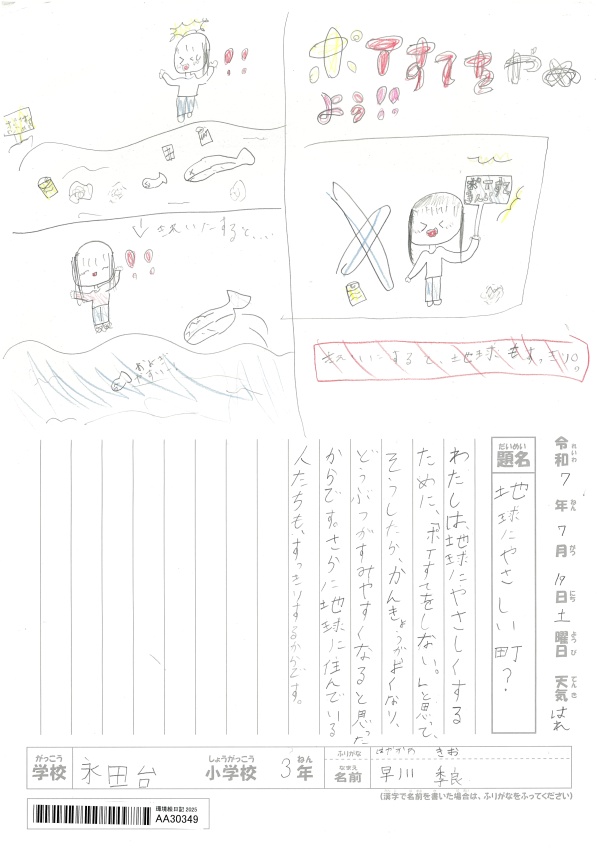 ポイすてをやめよう!!
ポイすてきんし
↓きれいにすると…
およぎやすい〜!
きれいにすると、地球もすっきり。
令和7年7月19日土曜日 天気はれ
題名 地球にやさしい町?
わたしは、地球にやさしくする
ために、「ポイすてをしない。」と思って、
そうしたら、かんきょうがよくなり、
どうぶつがすみやすくなると思った
からです。さらに地球に住んでいる
人たちも、すっきりするからです。
学校 永田台 小学校 3年
ふりがな はやかわ きお
名前 早川 季良
(漢字で名前を書いた場合は、ふりがなをふってください)
環境絵日記2025
AA30349